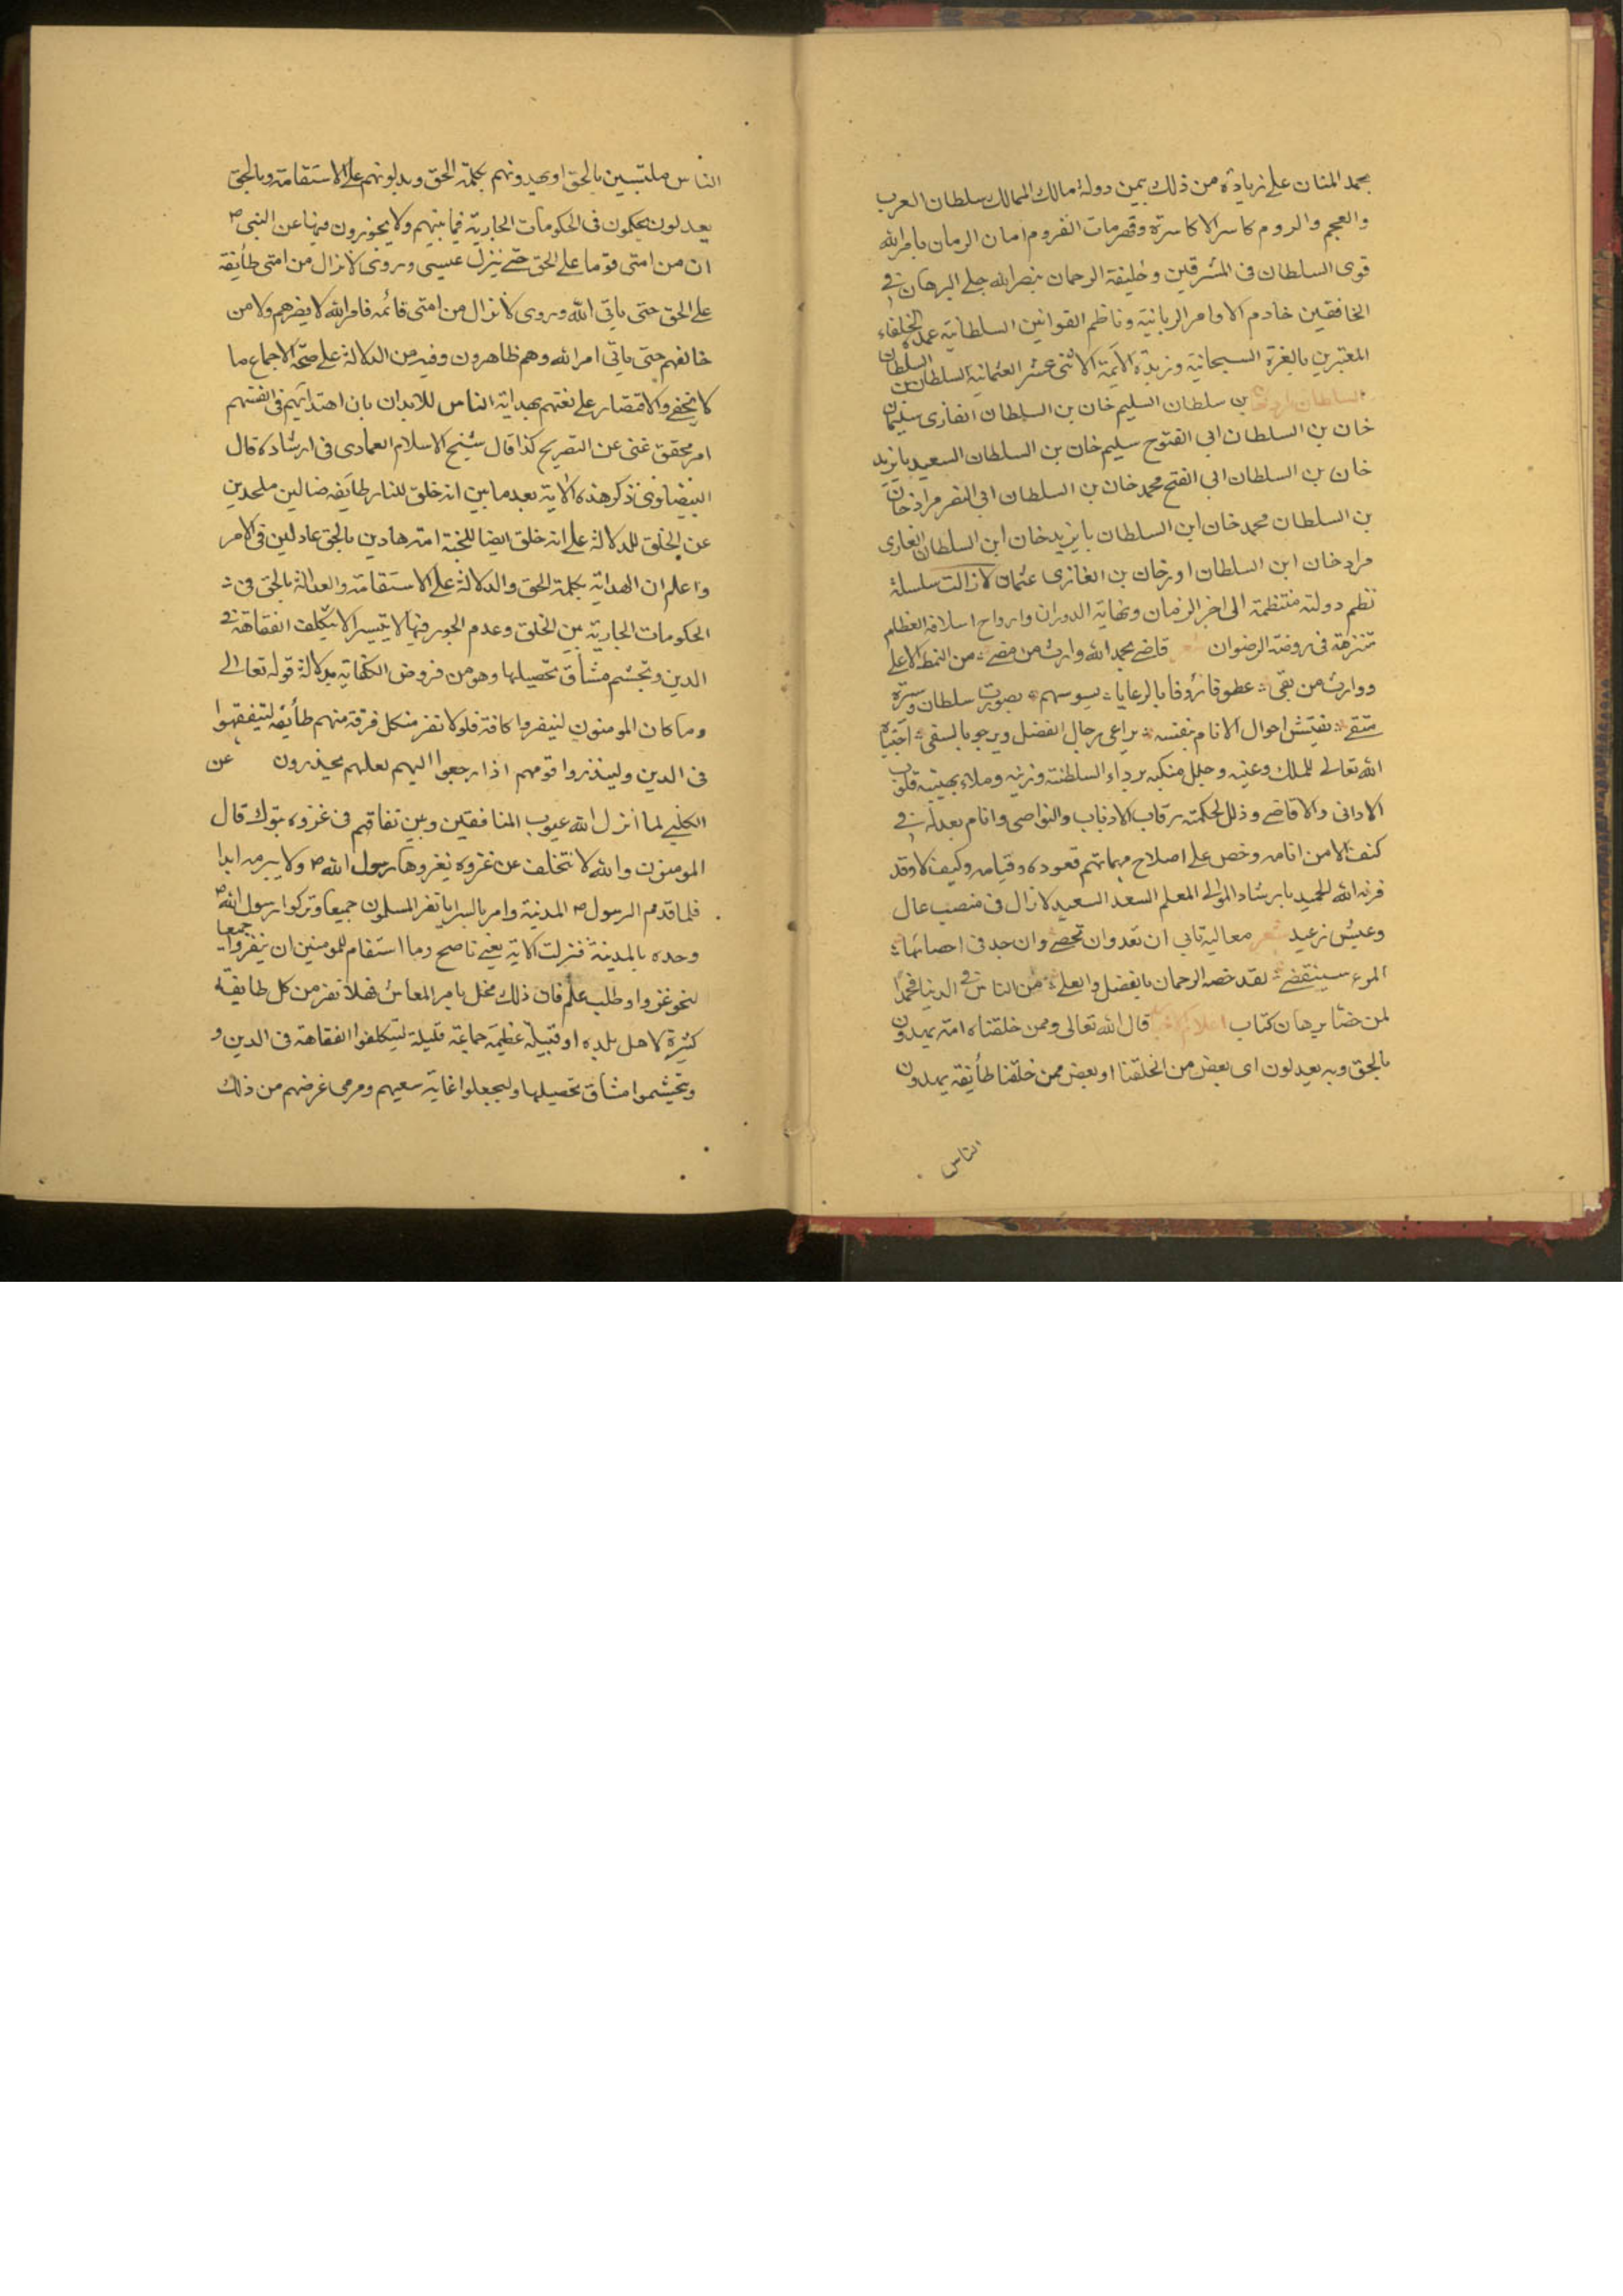 بحمد المنان على زيادة من ذلك بيمن دولة مالك الممالك سلطان العرب
والعجم والروم كاسر الاكاسرة وقهرمان القروم امان الزمان بامر الله
قوى السلطان فى المشرقين وخليفة الرحمان بنصر الله جلى البرهان فى
الخافقين خادم الاوامر الربانية وناظم القوانين السلطانية عمدة الخلفاء
المعتبرين بالغرة السبحانية وزبدة الائمة الاثنى عشر العثمانية السلطان بن السلطان
السلطان بن سلطان السليم خان بن السلطان الغازى سليمان
خان بن السلطان ابى الفتوح سليم خان بن السلطان السعيد بايزيد
خان بن السلطان ابى الفتح محمد خان بن السلطان ابى النصر مراد خان
بن السلطان محمد خان ابن السلطان بايزيد خان ابن السلطان الغازى
مراد خان ابن السلطان اورخان بن الغازى عثمان لا زالت سلسلة
نظم دولته منتظمة الى اخر الزمان ونهاية الدوران وارواح اسلافه العظام
متنزهة فى روضة الرضوان شعر قاضى بحمد الله وارث من مضى من النمط الاعلى
ووارث من بقى عطوفا رؤفا بالرعايا يسوسهم بصورت سلطان وسيرة
متقى يفتش احوال الانام بنفسه يراعى رجال الفضل ويرجو بالسقى اجتباه
الله تعالى للملك وعينه وجلل منكبه برداء السلطنة وزينه وملاء بهيبته قلوب
الادانى والاقاصى وذلل لحكمته رقاب الاذناب والنواصى وانام بعدله فى
كنف الامن انامه وخص على اصلاح مهماتهم قعوده وقيامه وكيف لا وقد
قرنه الله الحميد بارشاد المولى المعلم السعد السعيد لا زال فى منصب عال
وعيش رغيد شعر معاليه تابى ان تعد وان تحصى وان جد فى احصائها
المرء سينقضى لقد خصه الرحمان بالفضل والعلى من الناس فى الدنيا فحمدا
لمن خصا برهان كتاب قال الله تعالى وممن خلقناه امة يهدون
بالحق وبه يعدلون اى بعض من خلقنا او بعض ممن خلقنا طائفة يهدون
الناس
الناس ملتبسين بالحق او يهدونهم بكلمة الحق ويدلونهم على الاستقامة وبالحق
يعدلون يحكمون فى الحكومات الجارية فيما بينهم ولا يجورون فيها عن النبى ص
ان من امتى قوما على الحق حتى ينزل عيسى وروى لا نزال من امتى طائفة
على الحق حتى ياتى الله وروى لا نزال من امتى قائمه فامر الله لا يضرهم ولا من
خالفهم حتى ياتى امر الله وهم ظاهرون وفيه من الدلالة على صحة الاجماع ما
لا يخفى والاقتصار على نعتهم بهداية الناس للايذان بان اهتدائهم فى انفسهم
امر محقق غنى عن التصريح كذا قال شيخ الاسلام العمادى فى ارشاده قال
البيضاوى ذكر هذه الاية بعد ما بين انه خلق للنار طايفه ضالين ملحدين
عن الخلق للدلالة على انه خلق ايضا للجنة امة هادين بالحق عادلين فى الامر
واعلم ان الهداية بكلمة الحق والدلالة على الاستقامة والعدالة بالحق فى
الحكومات الجارية بين الخلق وعدم الجور فيها لا يتيسر الا بتكلف الفقاهة فى
الدين وتجشم مشاق تحصيلها وهو من فروض الكفاية بدلالة قوله تعالى
وما كان المومنون لينفروا كافة فلولا نفر من كل فرقة منهم طائفة ليتفقهوا
فى الدين ولينذروا قومهم اذا رجعوا اليهم لعلهم يحذرون عن
الكلبى لما انزل الله عيوب المنافقين وبين نفاقهم فى غزوه تبوك قال
المومنون والله لا نتخلف عن غزوه يغزوها رسول الله ص ولا سريه ابدا
فلما قدم الرسول ص المدينة وامر بالسرايا نفر المسلمون جميعا وتركوا رسول الله ص
وحده بالمدينة فنزلت الاية يعنى ما صح وما استقام للمومنين ان ينفروا جميعا
لنحو غزو او طلب علم فان ذلك مخل بامر المعاش فهلا نفر من كل طايفة
كثيرة لاهل بلده او قبيلة عظيمه جماعة قليلة ليتكلفوا الفقاهة فى الدين و
يتجشموا مشاق تحصيلها وليجعلوا غاية سعيهم ومرمى غرضهم من ذلك